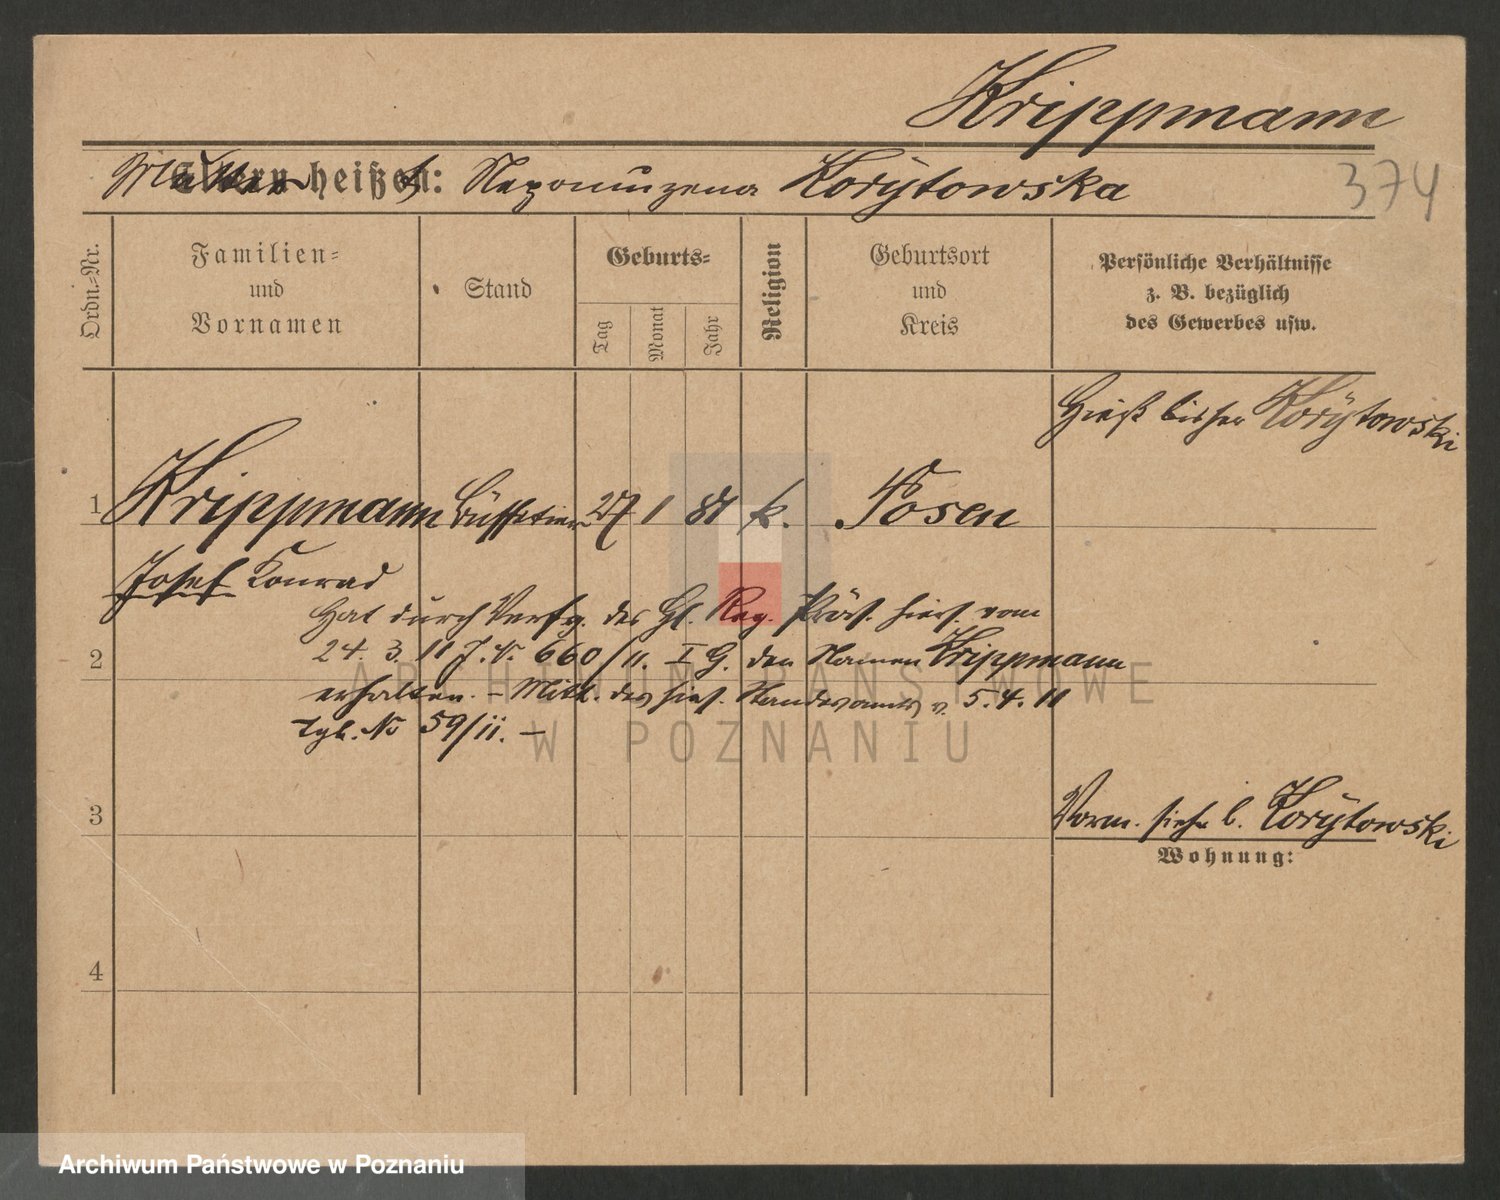 Krippmann
Mutter heißen: Nepomuzena Korytowska
374
Ordn.-Nr.
Familien-
und
Vornamen
Stand
Geburts-
Tag
Monat
Jahr
Religion
Geburtsort
und
Kreis
Persönliche Verhältnisse
z. B. bezüglich
des Gewerbes usw.
Hieß bisher Korytowski
1 Krippmann Büffetier 27 1 81 k. Posen
Josef Konrad
Hat durch Verfg. des H. Reg. Präs. hies. vom
24. 3. 11 J. N. 660/11. I G. den Namen Krippmann
2
erhalten. – Mitt. des hies. Standesamts v. 5. 4. 11
Tgb. No 59/11. –
3
Vorm. siehe b. Korytowski
Wohnung:
4
ARCHIWUM PAŃSTWOWE
W POZNANIU
Archiwum Państwowe w Poznaniu